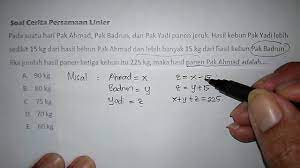 Soal Cerita Persamaan Linier
Pada suatu hari Pak Ahmad, Pak Badrun, dan Pak Yadi panen jeruk. Hasil kebun Pak Yadi lebih
sedikit 15 kg dari hasil kebun Pak Ahmad dan lebih banyak 15 kg dari hasil kebun Pak Badrun.
Jika jumlah hasil panen ketiga kebun itu 225 kg, maka hasil panen Pak Ahmad adalah....
A. 90 kg
B. 80 kg
C. 75 kg
D. 70 kg
E. 60 kg
Misal : Ahmad = x
Badrun = y
Yadi = z
z = x - 15
z = y + 15
x + y + z = 225